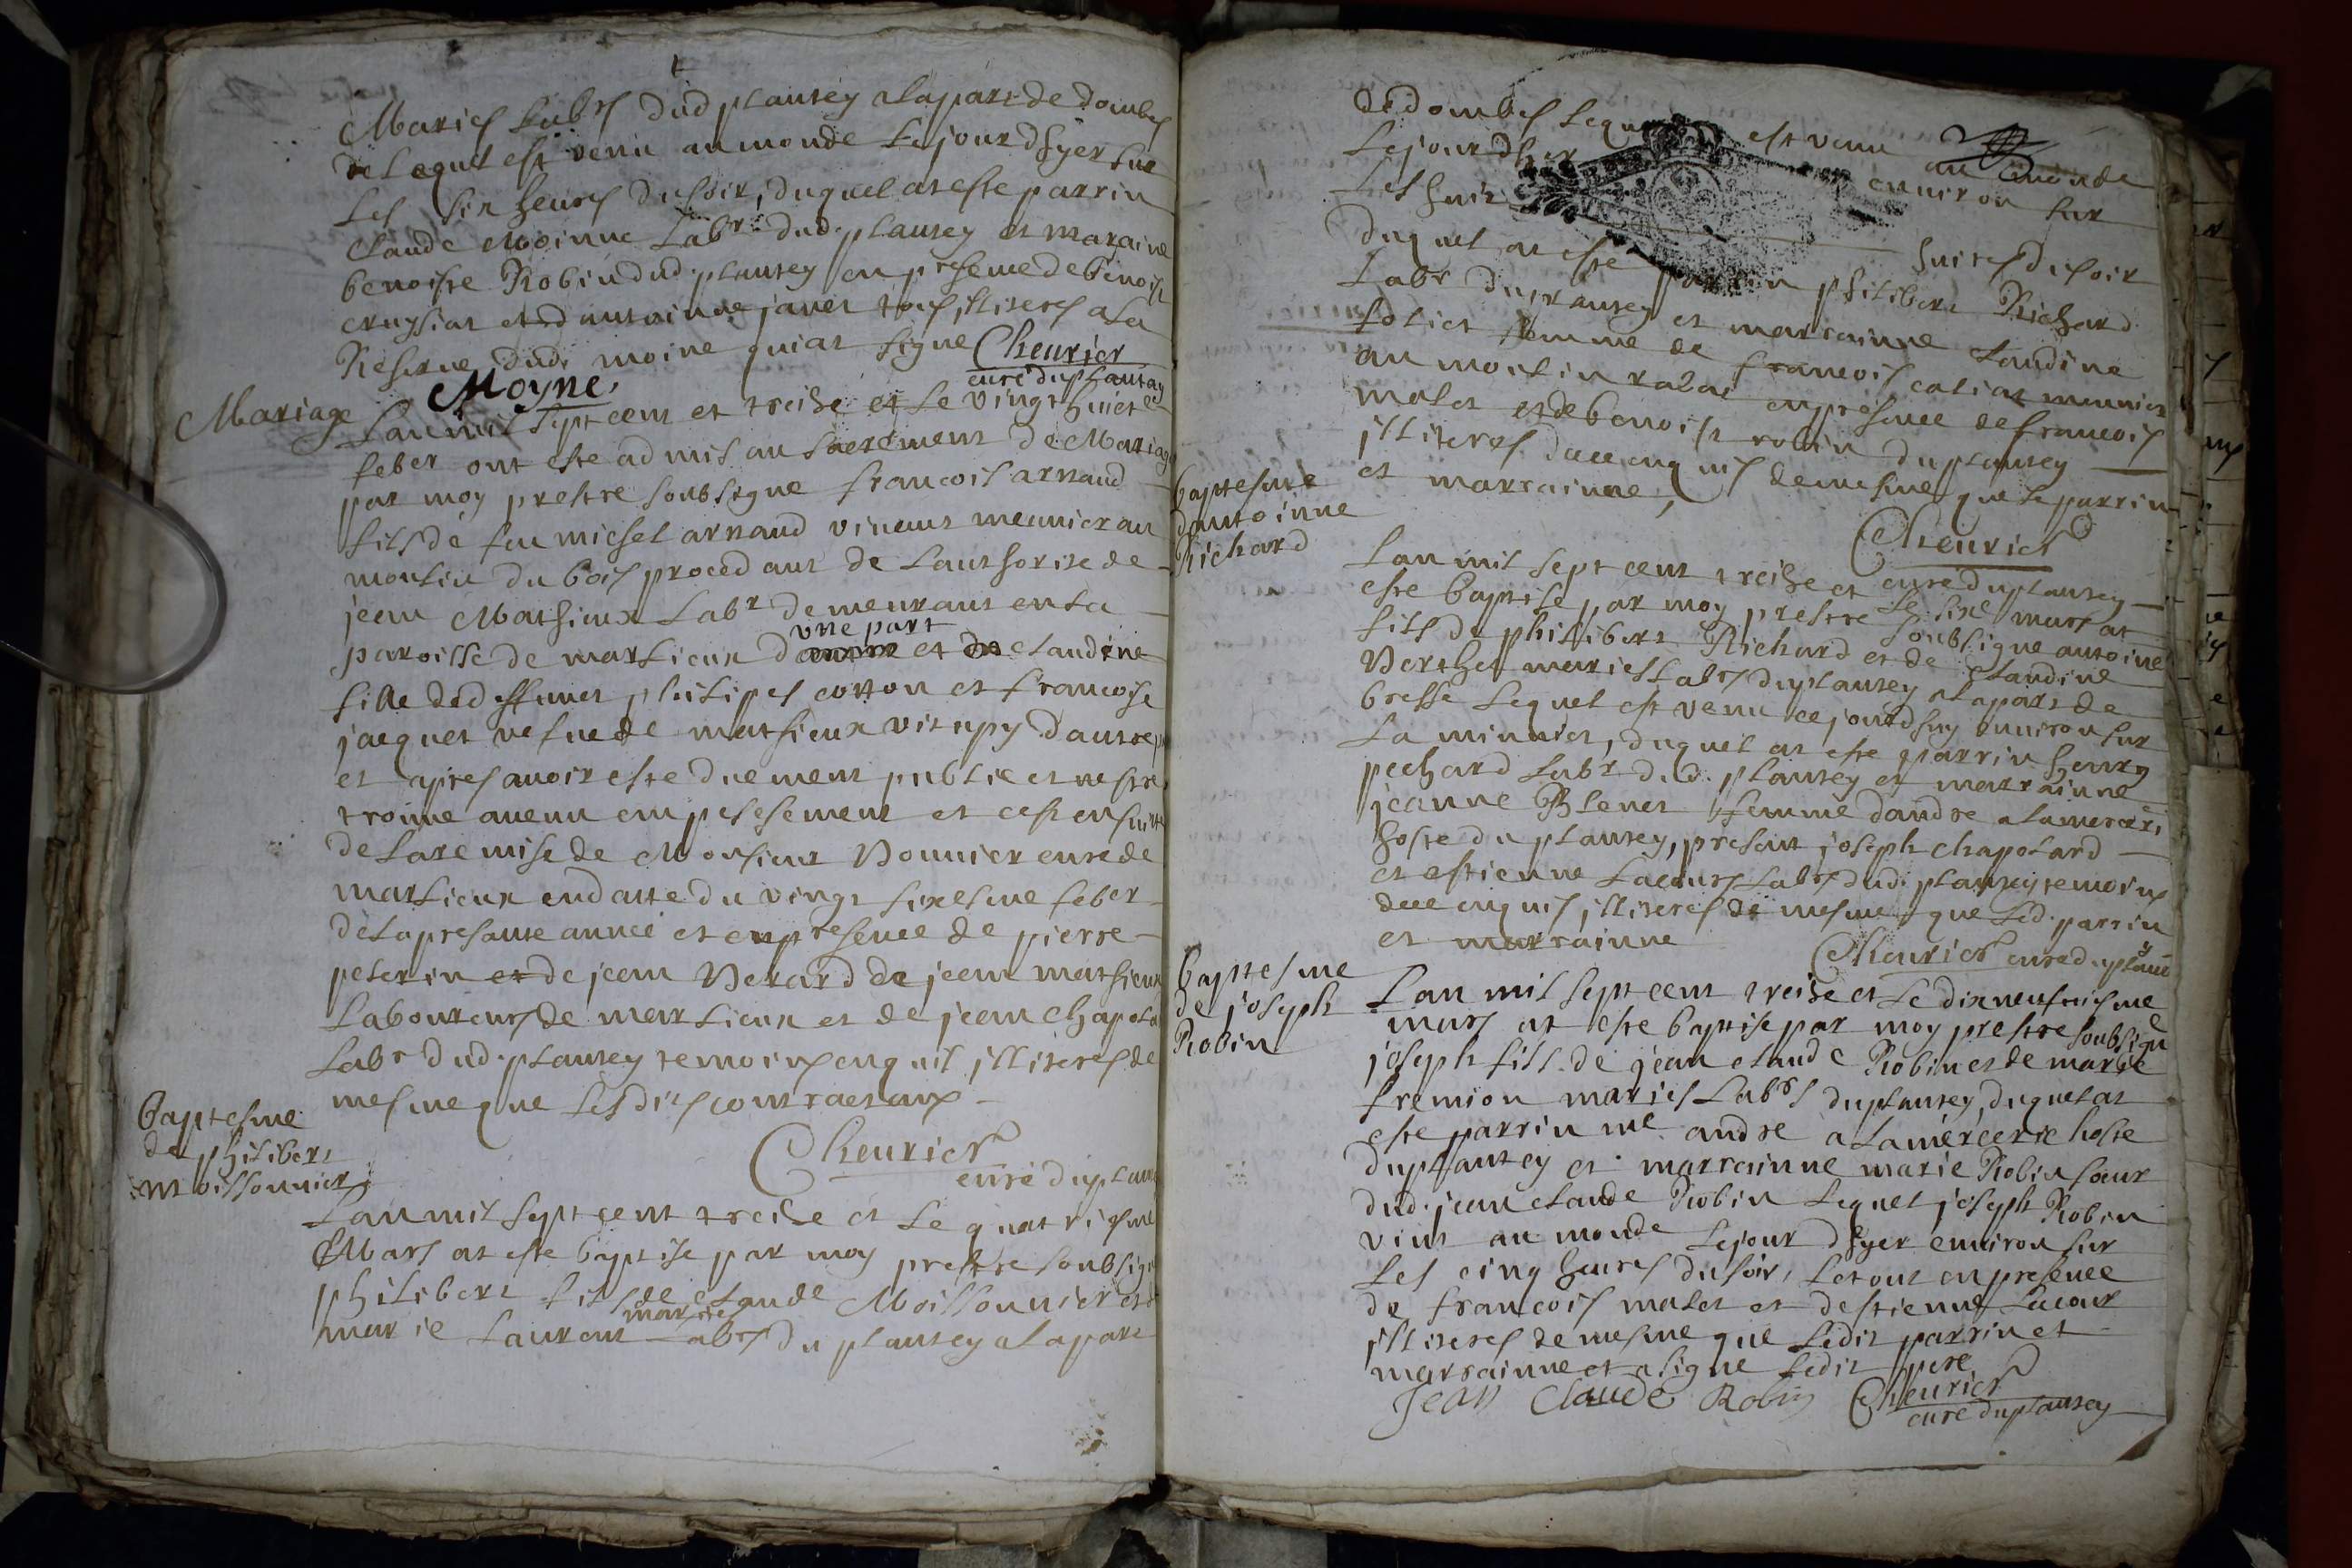 Mariés Labrs dud plantey alapart de dombes
delequel est venu au monde Lejour dhyer sur
Les six heures du soir, duquel at esté parrin
Claude Moinne Labr dud. plantey et maraine
benoiste Robin dud. plantey en presence de benoist
et dantoinne janet tous illiteres ala
Reserve dud. moine quiat signe Cheurier
curé du plantay
Moyne
Mariage
Lan mil sept cent et treise et Le vingt huict
feber ont esté admis au sacrement de Mariage
par moy prestre soubsigné francois arnaud
fils de feu michel arnaud vivant meunier au
moulin du bois procedant de Lauthorite de
jean Mathieux Labr demeurant en La
paroisse de marlieux dune part et claudine
fille ded deffunct philipes cotton et francoise
jacquet vefue de mathieux vitupy dautre
et apres avoir esté duement publie et ne sestre
trouué aucun empeschement et cest en suitte
de Laremise de Monsieur Vonnier curé de
marlieux en datte du vingt sixiesme feber
de La presante année et en presence de pierre
peterin et de jean Verard de jean mathieux
Laboureurs de marlieux et de jean chapola
Labr dud. plantey temoins enquis illiteres de
mesme que Lesdits contractans
Cheurier
curé du plant
baptesme
de philibert
moissonnier
Lan mil sept cent treise et Le quatriesme
Mars at esté baptisé par moy prestre soubsigné
philibert fils de claude Moissonnier et de
marie Laurent mariés Labrs du plantey alapart
de dombes Lequel est venu au monde
Lejour dhyer environ sur
Les huit huites du soir
duquel at esté parrin philibert Richard
Labr du plantey et marrainne Claudine
folict femme de francois catiat meunier
au moulin en presence de francois
malet et de benoist robin du plantey
illiteres dece enquis de mesme que le parrin
et marrainne,
Cheurier
curé du plantey
baptesme
dantoinne
Richard
Lan mil sept cent treise et Le six mars at
esté baptisé par moy prestre soubsigné antoine
fils de philibert Richard et de Claudine
Verchet mariés Labrs du plantey alapart de
bresse Lequel est venu cejourdhuy environ sur
La minuict, duquel at esté parrin henry
pechard Labr dud. plantey et marrainne
jeanne Blenet femme dandré alamercery
hoste du plantey, present joseph chapolard
et estienne Lacour Labrs dud. plantey temoins
dece enquis illiteres de mesme que Led. parrin
et marrainne
Cheurier curé du plantey
baptesme
de joseph
Robin
Lan mil sept cent treise et Le dix neufviesme
mars at esté baptisé par moy prestre soubsigné
joseph fils de jean claude Robin et de marie
fremion mariés Labrs du plantey, duquel at
esté parrin me andré alamercerie hoste
du plantey et marrainne marie Robin soeur
dud. jean claude Robin Lequel joseph Robin
vint au monde Lejour dhyer environ sur
Les cinq heures du soir, Letout en presence
de francois malet et destienne Lacour
illiteres de mesme que Ledit parrin et
marrainne et a signe Ledit pere
Jean Claude Robin Cheurier
curé du plantey